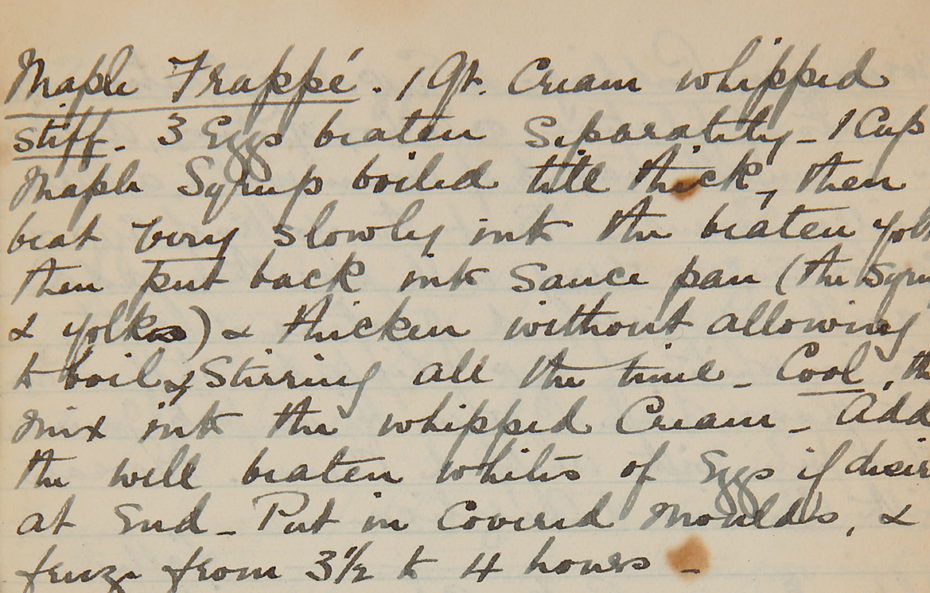 Maple Frappé. 1 Qt. Cream whipped
stiff. 3 Eggs beaten Seperately - 1 Cup
Maple Syrup boiled till thick, then
beat very slowly into the beaten yolk
then put back into Sauce pan (the Syru
& yolks) & thicken without allowing
to boil, & Stirring all the time - Cool, th
mix into the whipped Cream - Add
the well beaten whites of Eggs if desir
at End - Put in Covered Moulds, &
freeze from 3 1/2 to 4 hours -